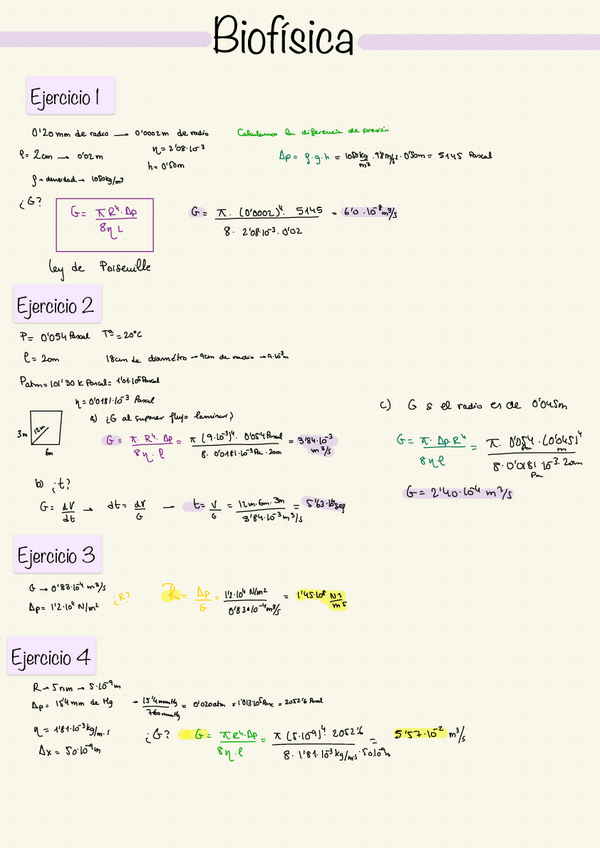 Biofísica
Ejercicio 1
0'20 mm de radio → 0'0002 m de radio
Calculamos la diferencia de presión
l = 2cm → 0'02 m
η = 2'08·10⁻³
h = 0'50m
Δp = ρ·g·h = 1050 kg/m³ · 9'8 m/s² · 0'50m = 5145 Pascal
ρ → densidad → 1050 kg/m³
¿G?
G = π R⁴·Δp / 8η L
G = π·(0'0002)⁴· 5145 / 8· 2'08·10⁻³·0'02 = 6'0·10⁻⁸ m³/s
Ley de Poiseuille
Ejercicio 2
P = 0'054 Pascal Tª = 20°C
l = 20m 18cm de diámetro → 9cm de radio →
Patm = 101'30 K Pascal = 1'01·10⁵ Pascal
η = 0'0181·10⁻³ Pascal
3m
12m
6m
a) ¿G al suponer flujo laminar?
G = π R⁴·Δp / 8η·l = π (9·10⁻²)⁴· 0'054 Pascal / 8·0'0181·10⁻³ Pa·20m = 3'84·10⁻³ m³/s
b) ¿t?
G = dV/dt → dt = dV/G → t = V/G = 12m·6m·3m / 3'84·10⁻³ m³/s = 5'63·10⁴ seg
c) G s el radio es de 0'045m
G = π·Δp R⁴ / 8η l = π·0'054 Pa·(0'045)⁴ m / 8·0'0181·10⁻³·20m Pa
G = 2'40·10⁻⁴ m³/s
Ejercicio 3
G → 0'83·10⁻⁴ m³/s
Δp = 1'2·10⁴ N/m²
¿R?
R = Δp/G = 1'2·10⁴ N/m² / 0'83·10⁻⁴ m³/s = 1'45·10⁸
Ejercicio 4
R → 5nm → 5·10⁻⁹ m
Δp = 15'4 mm de Hg → 15'4 mmHg / 760 mmHg = 0'020 atm × 1'013·10⁵ Pasc = 2052'6 Pascal
η = 1'81·10⁻³ kg/m·s
Δx = 50·10⁻⁹ m
¿G?
G = π R⁴·Δp / 8η·l = π (5·10⁻⁹)⁴· 2052'6 / 8·1'81·10⁻³ kg/m·s·50·10⁻⁹ = 5'57·10⁻² m³/s